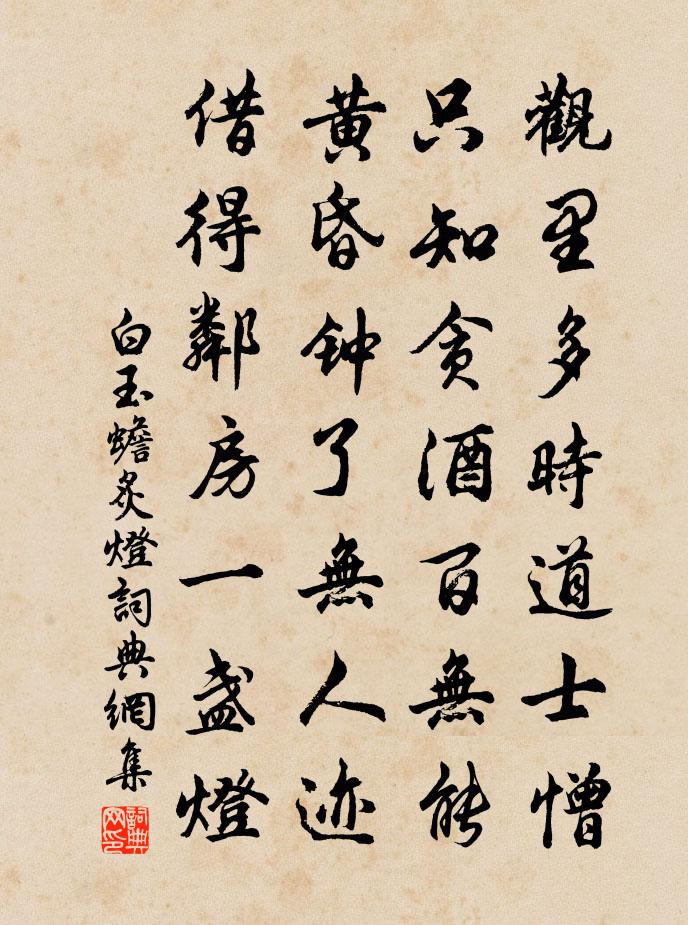 觀里多時道士憎
只知貪酒百無能
黃昏钟了無人迹
借得鄰房一盞燈
白玉蟾炙燈詞典網集
詞典网印